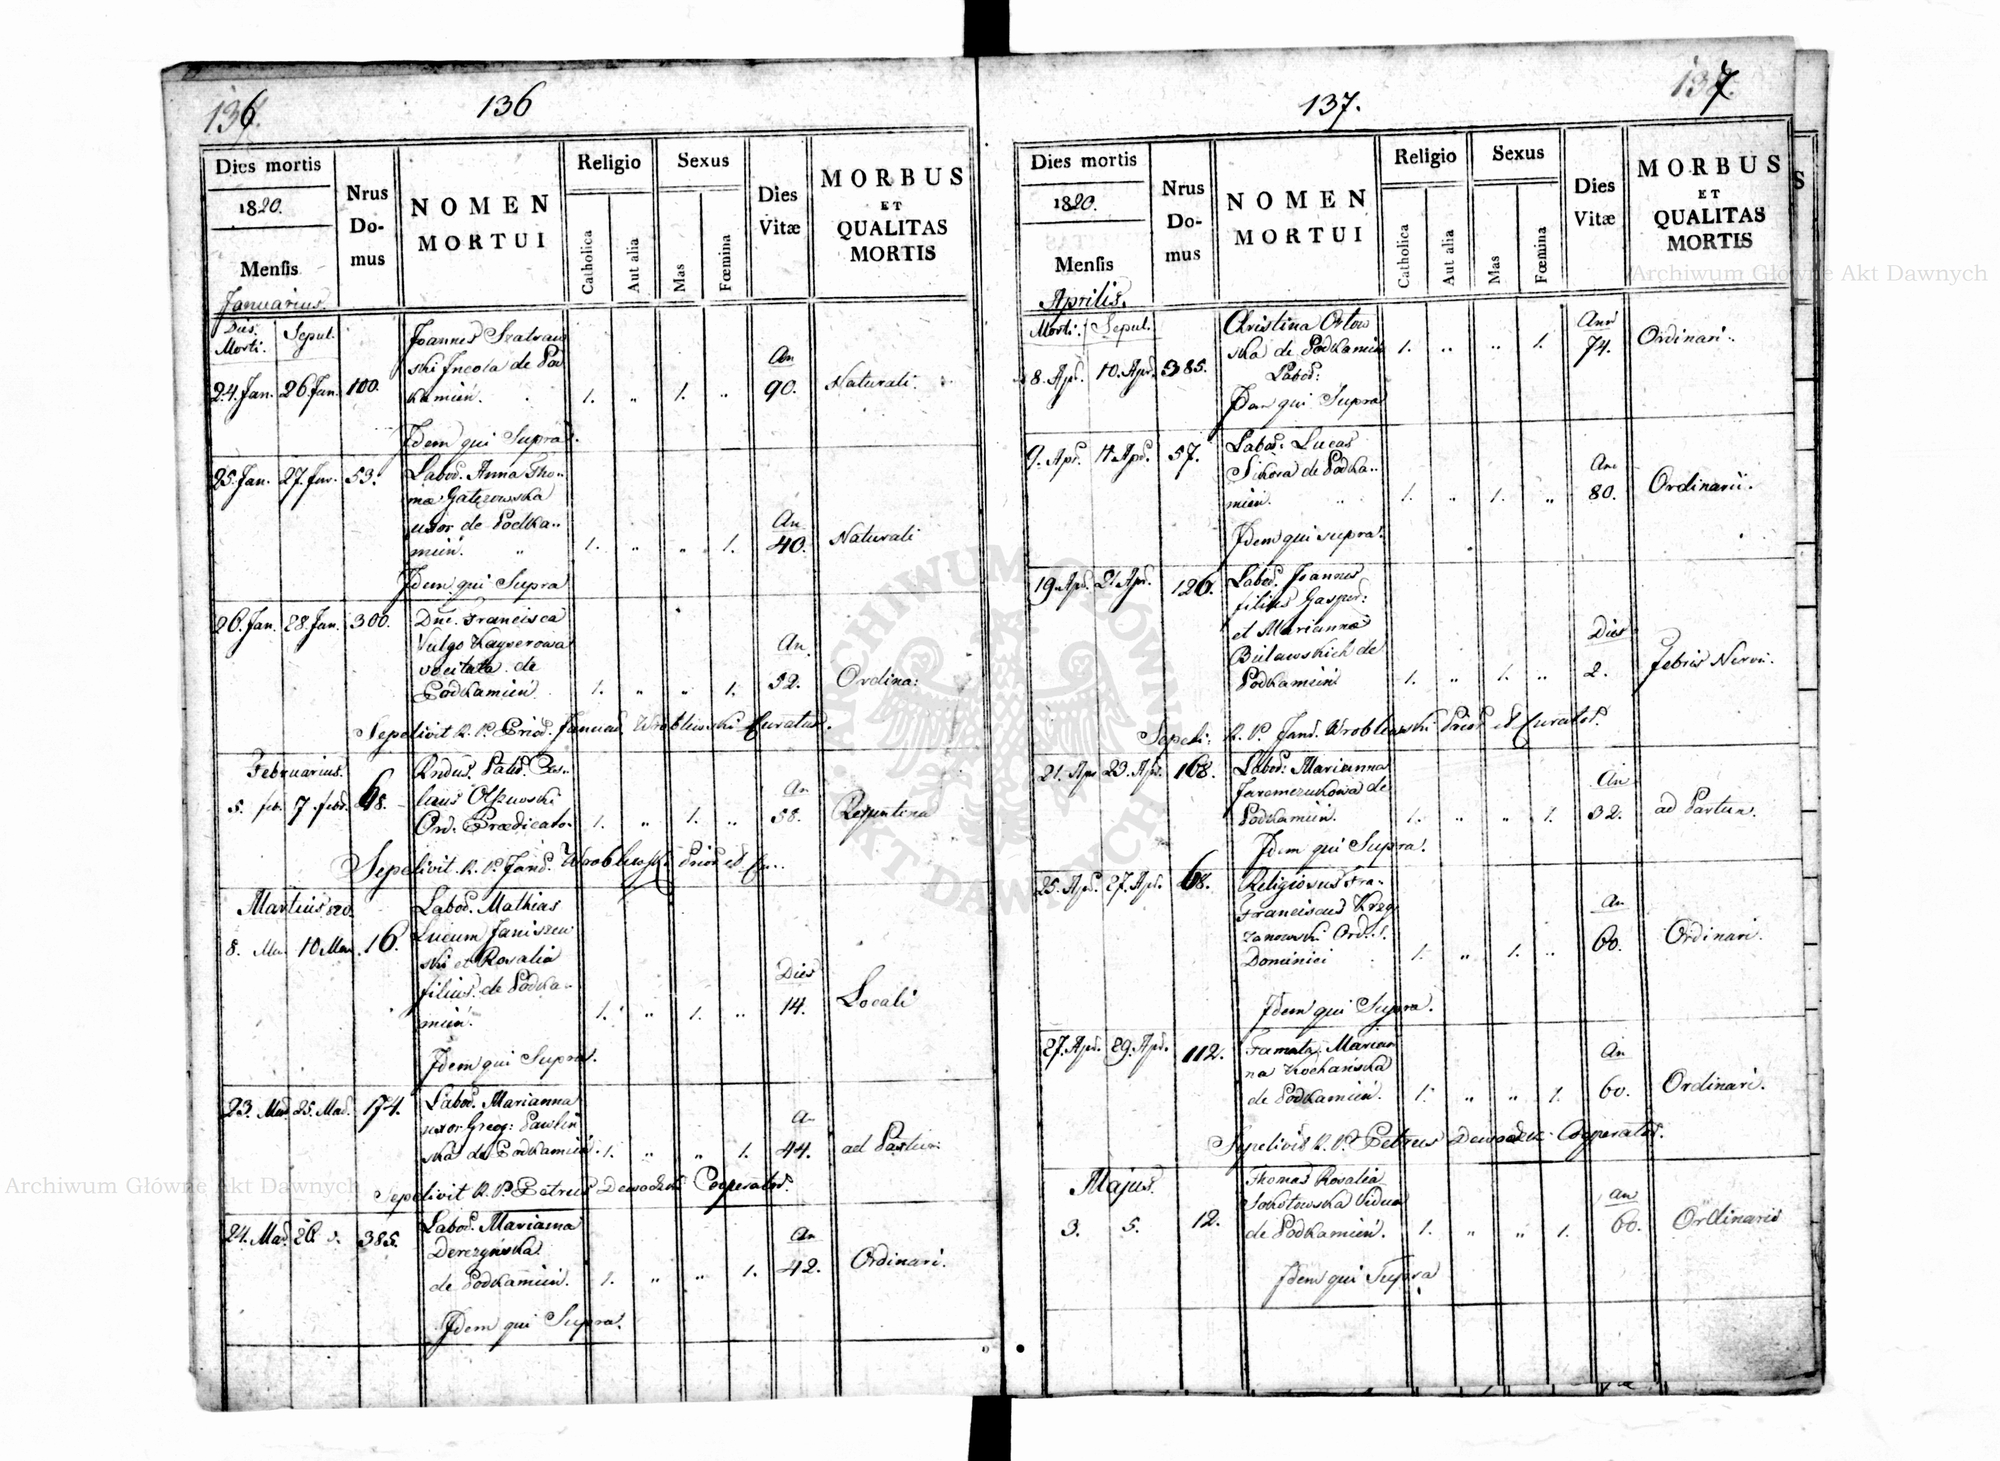 136.
136
Dies mortis
1820.
Mensis
Januarius.
Nrus Do-
mus
NOMEN
MORTUI
Religio
Catholica
Aut alia
Sexus
Mas
Fœmina
Dies
Vitæ
MORBUS
ET
QUALITAS
MORTIS
Dies Morti. Sepul.
Joannes
ski Incola de Pod
24. Jan. 26. Jan. 100. kamien. 1. " 1. " An 90. Naturali.
Idem qui Supra.
25. Jan. 27. Jan. 53. Labor. Anna Tho-
mæ
uxor de Podka-
mień. " 1. " " 1. An 40. Naturali
Idem qui Supra
26. Jan. 28. Jan. 300. Francisca
Vulgo Kayserowa
vocitata de
Podkamień. 1. " " 1. An. 52. Ordina:
Sepelivit R. P. Wroblewski Curatus.
Februarius.
5. feb. 7 febr. 68.
Ord. Prædicato. 1. " 1. " An 58. Repentina
Sepelivit R. P. Wroblewski Prior et Cu..
Martius 820.
Labor. Mathias
8. Mar. 10 Mar. 16. Janiszew
ski et Rosalia
filius de Podka-
mień. 1. " 1. " Dies 14. Locali
Idem qui Supra.
23. Mar. 25. Mar. 174. Labor. Marianna
uxor Greg: Pawlin
ska de Podkamień. 1. " " 1. An 44. ad Partum
Sepelivit R. P. Petrus Cooperator.
24. Mar. 26 385. Labor. Marianna
Derezyńska
de Podkamień. 1. " " 1. An 42. Ordinari.
Idem qui Supra.
137.
137.
Dies mortis
1820.
Mensis
Aprilis.
Nrus
Do-
mus
NOMEN
MORTUI
Religio
Catholica
Aut alia
Sexus
Mas
Fœmina
Dies
Vitæ
MORBUS
ET
QUALITAS
MORTIS
Morti. Sepul.
Christina Orłow
ska de Podkamień 1. " " 1. Ann 74. Ordinari.
8. Apr. 10. Apr. 385. Labor:
Idem qui Supra
9. Apr. 11 Apr. 57. Labor. Lucas
Sikora de Podka-
mień. 1. " 1. " An 80. Ordinarii.
Idem qui supra.
19 Apr. 21 Apr. 126. Labor. Joannes
filius Gasper:
et Marianna
de
Podkamień 1. " 1. " Dies 2. febris Nervi.
Sepeli: R. P. Wroblewski Prior et Curator.
21. Apr 23. Apr. 168. Labor: Marianna
Jaremczukowa de
Podkamień. 1. " " 1. An 32. ad Partum.
Idem qui Supra.
25. Apr. 27. Apr. 68. Religiosus Fra-
Franciscus Krzy
żanowski Ord. S.
Dominici 1. " 1. " An 60. Ordinari.
Idem qui Supra.
27. Apr. 29. Apr. 112. Famata Marian
na Kochańska
de Podkamień. 1. " " 1. An 60. Ordinari.
Sepelivit R. P. Petrus Cooperator.
Majus.
Thomas Rosalia
Vidua
3. 5. 12. de Podkamień. 1. " " 1. An 60. Ordinario
Idem qui Supra
Archiwum Główne Akt Dawnych
Archiwum Główne Akt Dawnych
ARCHIWUM GŁÓWNE AKT DAWNYCH